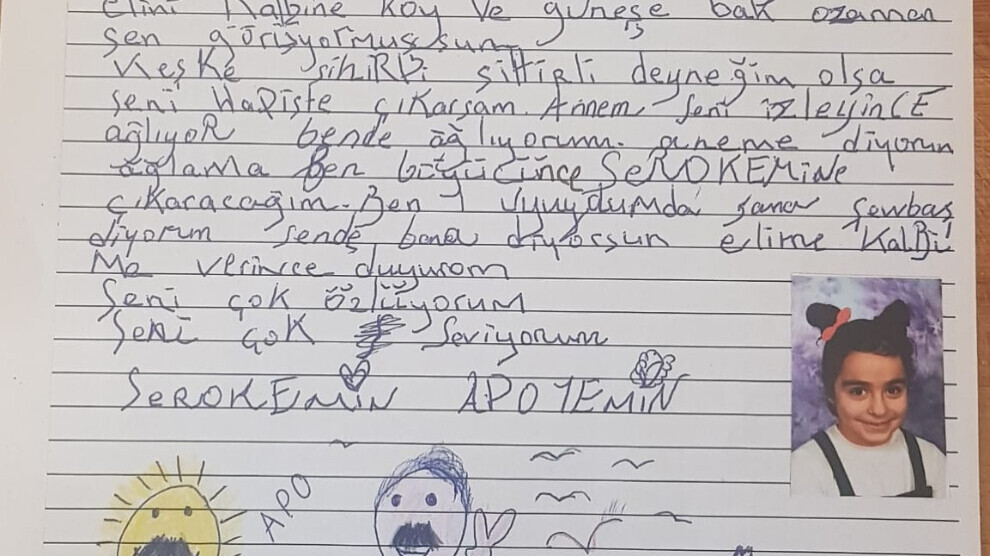 elini Kalbine Koy ve güneşe bak ozaman
sen görüşyormuşsun
Keşke sihirli deyneğim olsa
seni Hapişte çıkarsam. Annem seni izleyinCE
ağlıyoR bende ağlıyorum. aneme diyorum
ağlama Ben büyüçünçe SeROKEMiNe
çıKaracağım. Ben uyuyduмda sana şewbaş
diyorum sende bana diyorsun elime KalBi
Me verince duyurom
Seni çok özlüyorum
Seni çoK Seviyorum
SeROKEMiN APOYEMiN
APO